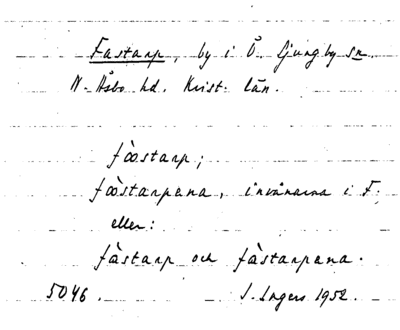 Fastarp, by i Ö. Ljungby sn.
N. Åsbo hd. Krist. län.
fòòstarp;
fòòstarpana, invånarna i F.
eller:
fàstarp och fàstarpana.
5046. I. Ingers 1952.